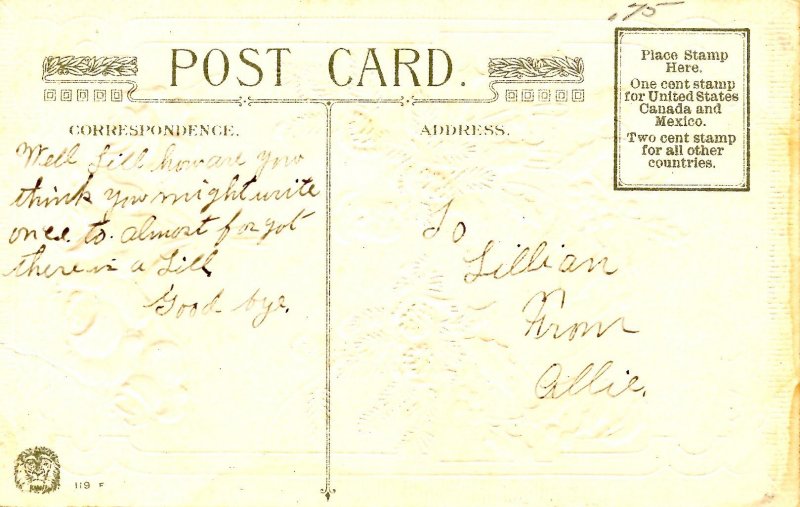 .75
POST CARD.
CORRESPONDENCE.
ADDRESS.
Place Stamp
Here.
One cent stamp
for United States
Canada and
Mexico.
Two cent stamp
for all other
countries.
Well Lill how are you
think you might write
once to almost forgot
there is a Lill
Good bye.
To
Lillian
From
Allie.
119 F